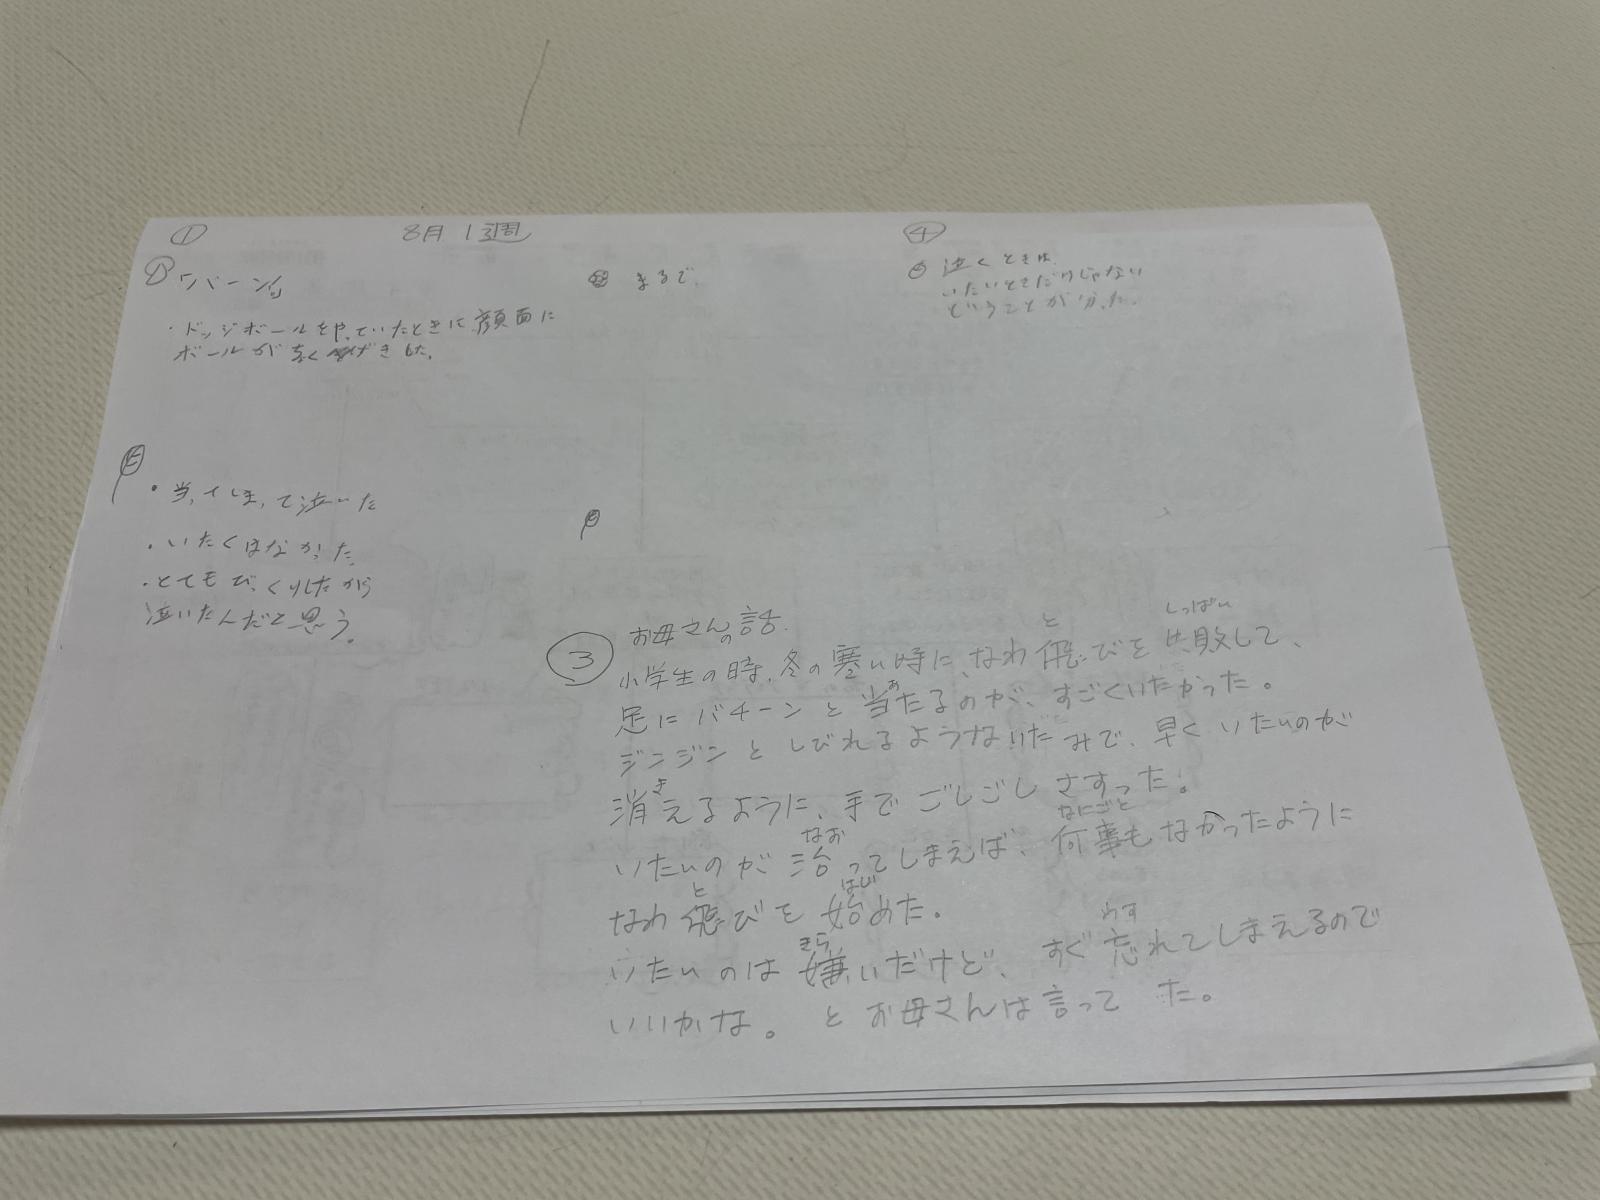 ① 8月1週
①「バーン」
・ドッジボールをやっていたときに顔面に
ボールが直げきした。
・当ってしまって泣いた
・いたくはなかった
・とてもびっくりしたから
泣いたんだと思う。
まるで、
③ お母さんの話
小学生の時、冬の寒い時に、なわ飛びを失敗して、
と しっぱい
足にバチーンと当たるのが、すごくいたかった。
あ
ジンジンとしびれるようないたみで、早くいたいのが
消えるように、手でごしごしさすった。
き
いたいのが治ってしまえば、何事もなかったように
なお なにごと
なわ飛びを始めた。
と はじ
いたいのは嫌いだけど、すぐ忘れてしまえるので
きら わす
いいかな。とお母さんは言ってた。
④
泣くときは
いたいときだけじゃない
ということが分かった。